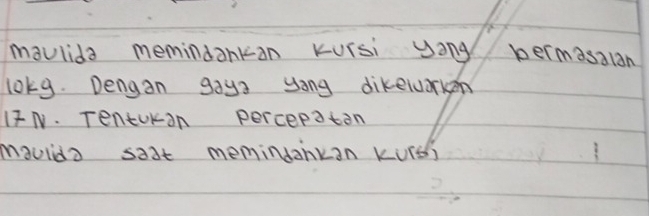 maulida memindahkan kursi yang bermasalah
10kg. Dengan gaya yang dikeluarkan
17 N. Tentukan percepatan
maulida saat memindahkan kursi